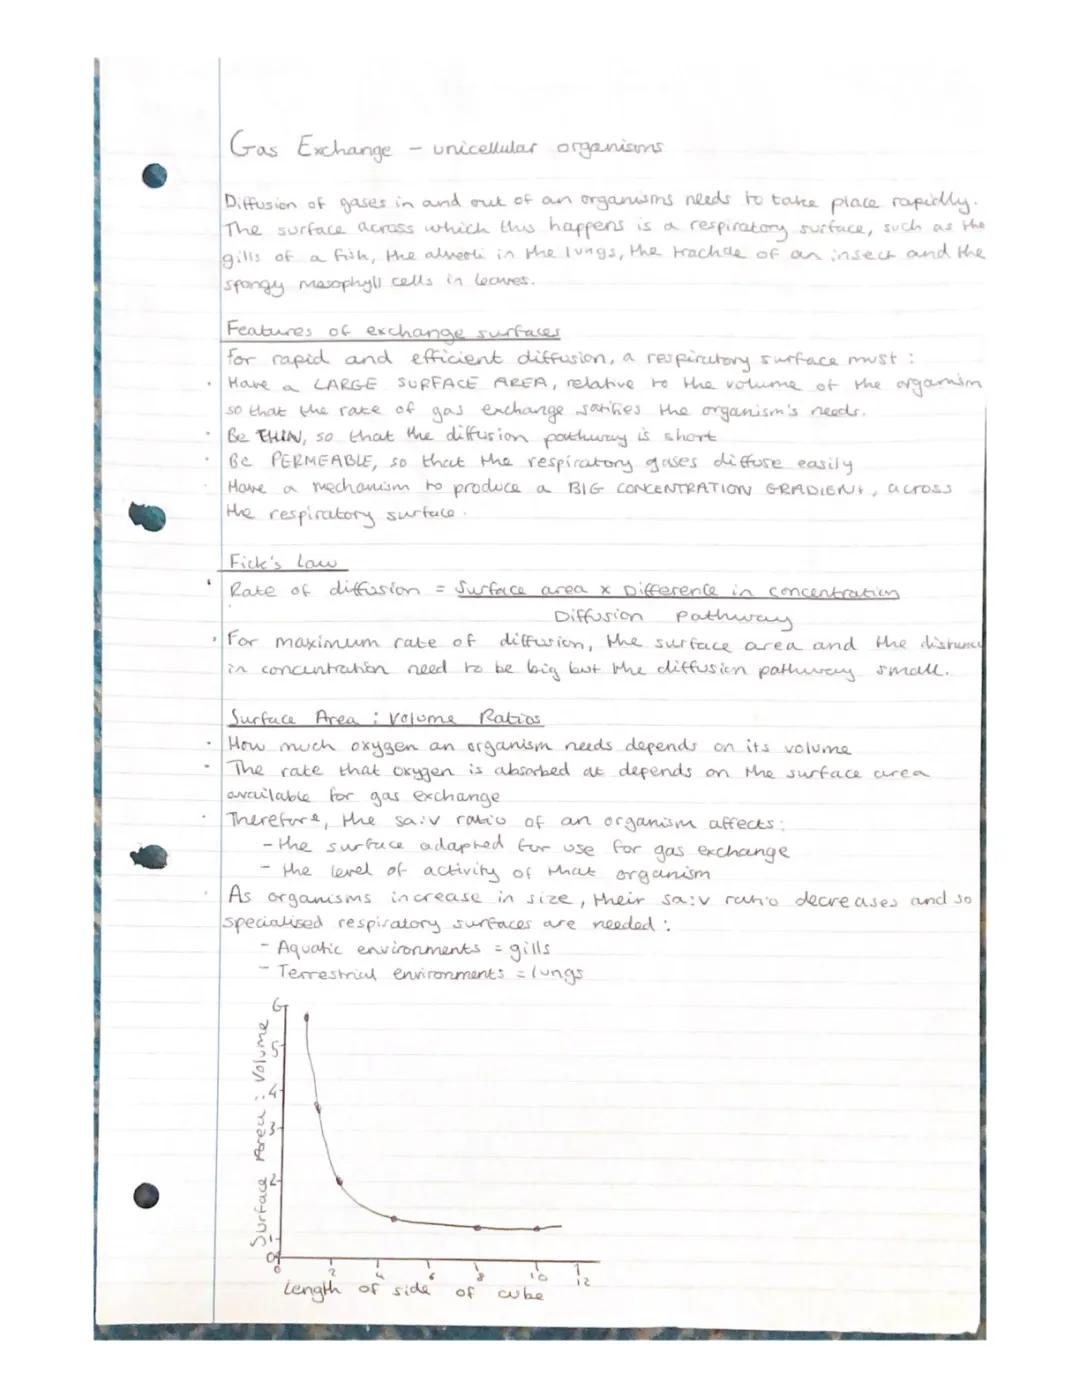 Gas Exchange - unicellular organisms
Diffusion of gases in and out of an organisms needs to take place rapidly.
The surface across which this happens is a respiratory surface, such as the
gills of a fish, the alveoli in the lungs, the trachae of an insect and the
spongy mesophyll cells in leaves.
Features of exchange surfaces
For rapid and efficient diffusion, a respiratory surface must :
· Have a LARGE SURFACE AREA, relative to the volume of the organism
so that the rate of gas exchange satifies the organism's needs.
· Be THIN, so that the diffusion pathway is short
· Be PERMEABLE, so that the respiratory gases diffuse easily
· Have a mechanism to produce a BIG CONCENTRATION GRADIENT, across
the respiratory surface.
Fick's Law
· Rate of diffusion = Surface area x Difference in concentration
Diffusion Pathway
· For maximum rate of diffusion, the surface area and the distance
in concentration need to be big but the diffusion pathway small.
Surface Area : Volume Ratios
· How much oxygen an organism needs depends on its volume
· The rate that oxygen is absorbed at depends on the surface area
available for gas exchange
· Therefore, the sa:v ratio of an organism affects:
- the surface adapted for use for gas exchange
- the level of activity of that organism
· As organisms increase in size, their sa:v ratio decreases and so
specialised respiratory surfaces are needed :
- Aquatic environments = gills
- Terrestrial environments = lungs
Surface Area : Volume
6
5
4
3
2
1
0
0 2 4 6 8 10 12
Length of side of cube